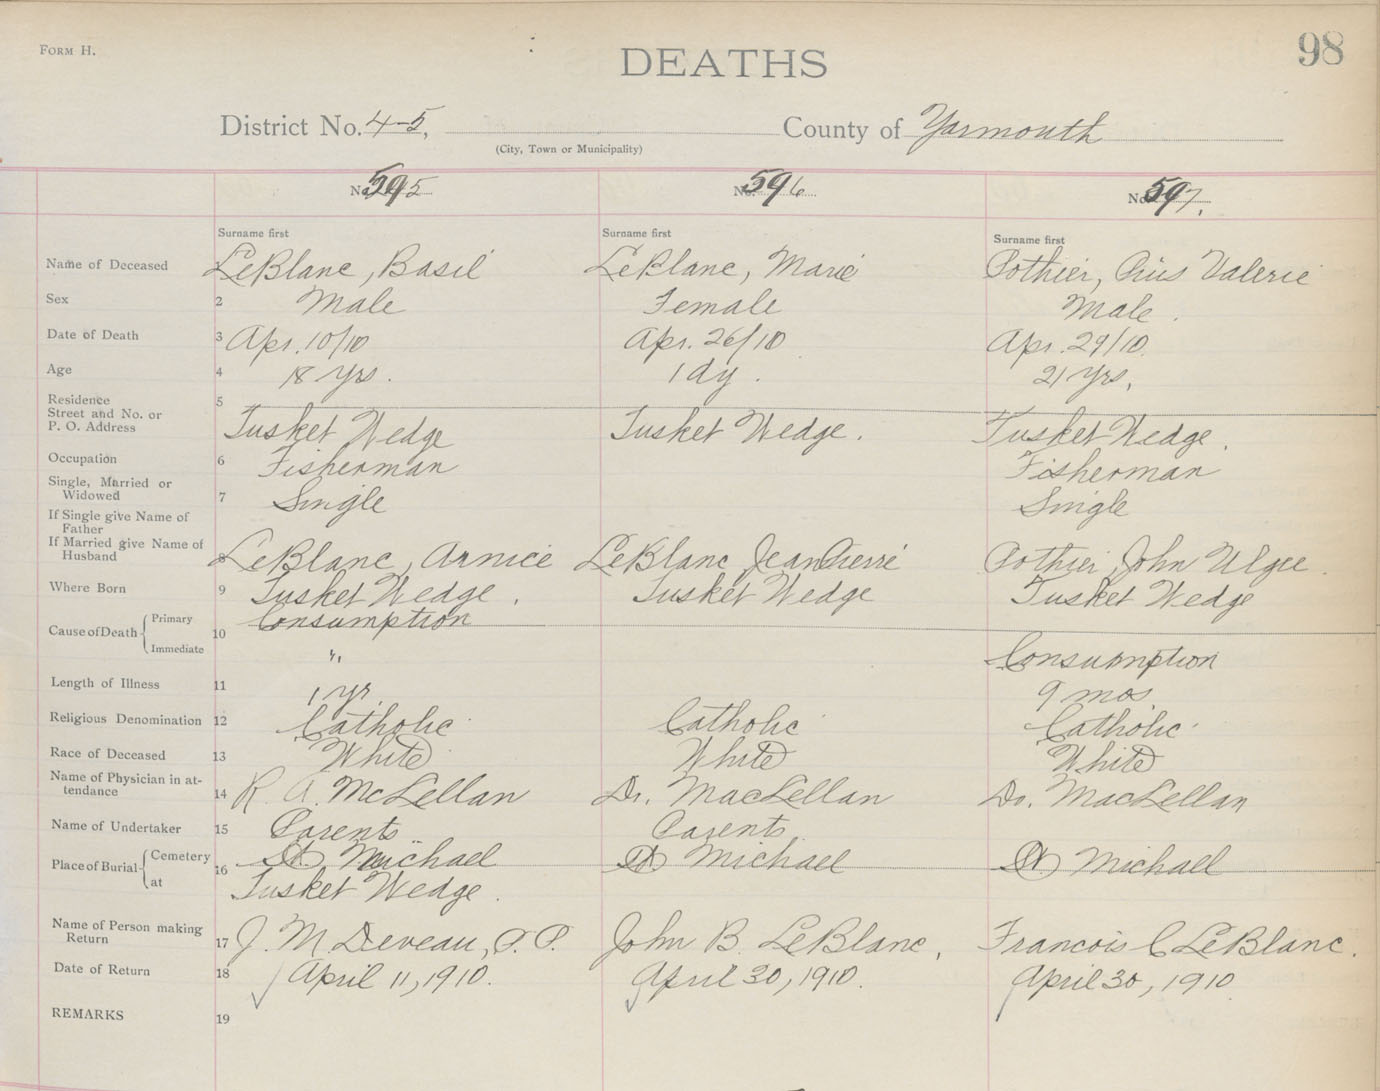 FORM H.
DEATHS
98
District No. 4-5,
County of Yarmouth
(City, Town or Municipality)
No. 595
No. 596
No. 597.
Surname first
Surname first
Surname first
Name of Deceased 1 LeBlanc, Basil LeBlanc, Marie Pothier, Pius Valerie
Sex 2 Male Female Male.
Date of Death 3 Apr. 10/10 Apr. 26/10 Apr. 29/10
Age 4 18 yrs. 1 dy. 21 yrs.
Residence 5
Street and No. or
P. O. Address Tusket Wedge Tusket Wedge. Tusket Wedge.
Occupation 6 Fisherman Fisherman
Single, Married or
Widowed 7 Single Single
If Single give Name of
Father
If Married give Name of
Husband 8 LeBlanc, Arnice LeBlanc Jean Pierre Pothier, John Ulgee.
Where Born 9 Tusket Wedge. Tusket Wedge Tusket Wedge
Cause of Death Primary 10 Consumption
Immediate " Consumption
Length of Illness 11 1 yr. 9 mos.
Religious Denomination 12 Catholic Catholic Catholic
Race of Deceased 13 White White White
Name of Physician in at-
tendance 14 R. A. McLellan Dr. MacLellan Dr. MacLellan
Name of Undertaker 15 Parents Parents
Place of Burial Cemetery 16 St. Michael St. Michael St. Michael
at Tusket Wedge.
Name of Person making
Return 17 J. M. Deveau, P.P. John B. LeBlanc, Francois C LeBlanc.
Date of Return 18 April 11, 1910. April 30, 1910. April 30, 1910
REMARKS 19